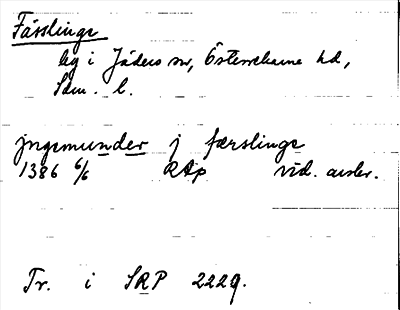 Fässlinge
by i Jäders sn, Österrekarne hd,
Sdm. l.
jngemunder j færslinge
1386 6/6 RAp vid. avskr.
Tr. i SRP 2229.